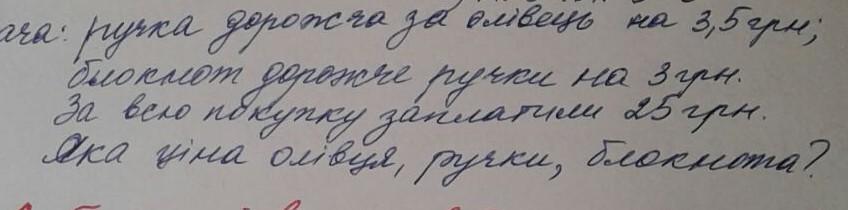 ача: ручка дорожча за олівець на 3,5 грн;
блокнот дорожче ручки на 3 грн.
За всю покупку заплатили 25 грн.
Яка ціна олівця, ручки, блокнота?